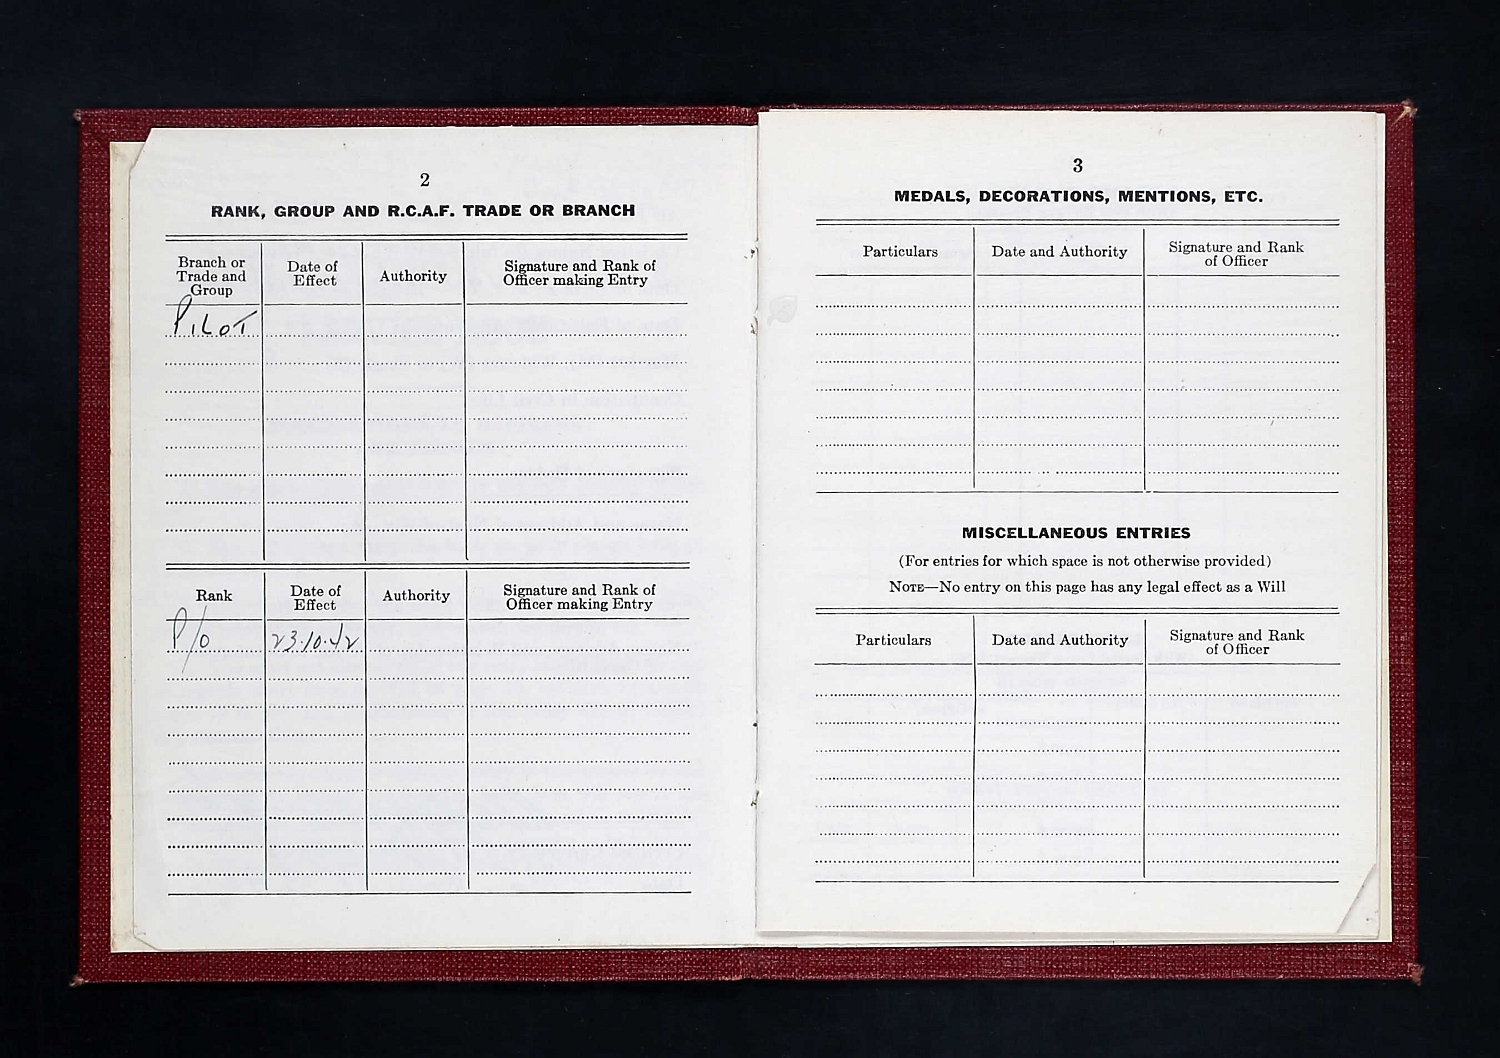 2
RANK, GROUP AND R.C.A.F. TRADE OR BRANCH
Branch or Trade and Group
Date of Effect
Authority
Signature and Rank of Officer making Entry
PILOT
Rank
Date of Effect
Authority
Signature and Rank of Officer making Entry
P/O
23·10·42
3
MEDALS, DECORATIONS, MENTIONS, ETC.
Particulars
Date and Authority
Signature and Rank of Officer
MISCELLANEOUS ENTRIES
(For entries for which space is not otherwise provided)
NOTE—No entry on this page has any legal effect as a Will
Particulars
Date and Authority
Signature and Rank of Officer